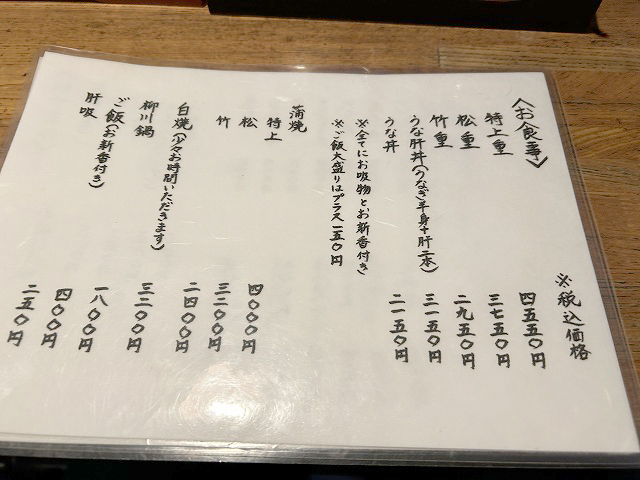 <お食事>
※税込価格
特上重 四五五〇円
松重 三七五〇円
竹重 二九五〇円
うな肝丼(うなぎ半身+肝二本) 三一五〇円
うな丼 二一五〇円
※全てにお吸物とお新香付き
※ご飯大盛りはプラス一五〇円
蒲焼
特上 四〇〇〇円
松 三二〇〇円
竹 二四〇〇円
白焼(少々お時間いただきます) 三二〇〇円
柳川鍋 一八〇〇円
ご飯(お新香付き) 四〇〇円
肝吸 二五〇円